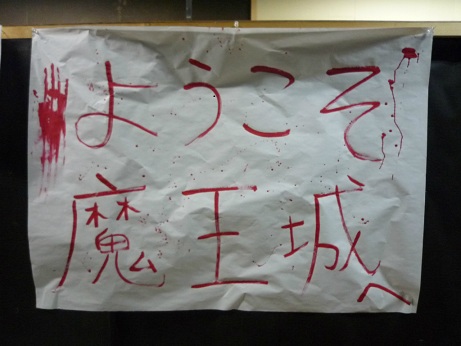 ようこそ
魔王城へ